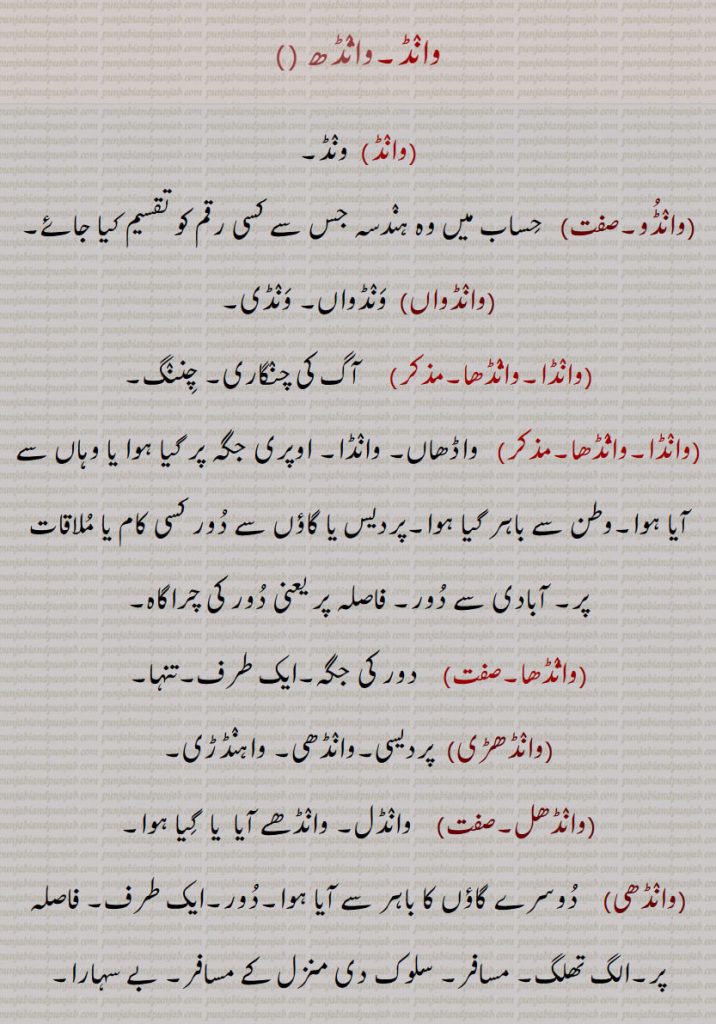 وانٛڈ۔وانٛڈھ ()
(وانٛڈ) ونٛڈ۔
(وانٛڈُو۔صفت) حِساب میں وہ ہندسہ جس سے کسی رقم کو تقسیم کیا جائے۔
(وانٛڈواں) وَنٛڈواں۔ وَنٛڈی۔
(وانٛڈا۔وانٛڈھا۔مذکر) آگ کی چنگاری۔ چِننگ۔
(وانٛڈا۔وانٛڈھا۔مذکر) واڈھاں۔ وانٛڈا۔ اوپری جگہ پر گیا ہوا یا وہاں سے
آیا ہوا۔وطن سے باہر گیا ہوا۔پردیس یا گاؤں سے دُور کسی کام یا مُلاقات
پر۔ آبادی سے دُور۔ فاصلہ پر یعنی دُور کی چراگاہ۔
(وانٛڈھا۔صفت) دور کی جگہ۔ایک طرف۔تنہا۔
(وانٛڈھڑی) پردیسی۔وانٛڈھی۔ واہنٛڈڑی۔
(وانٛڈھل۔صفت) وانٛڈل۔ وانٛڈھے آیا یا گِیا ہوا۔
(وانٛڈھی) دُوسرے گاؤں کا باہر سے آیا ہوا۔دُور۔ایک طرف۔ فاصلہ
پر۔الگ تھلگ۔ مسافر۔ سلوک دی منزل کے مسافر۔ بے سہارا۔